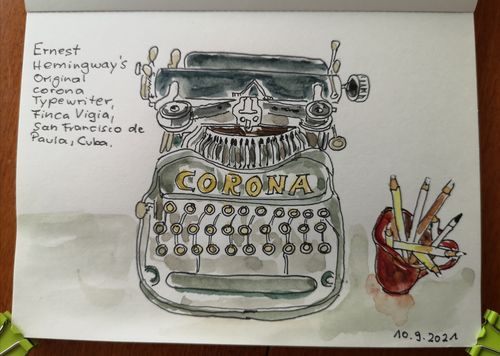 Ernest
Hemingway's
Original
Corona
Typewriter,
Finca Vigia,
San Francisco de
Paula, Cuba.
CORONA
10.9.2021